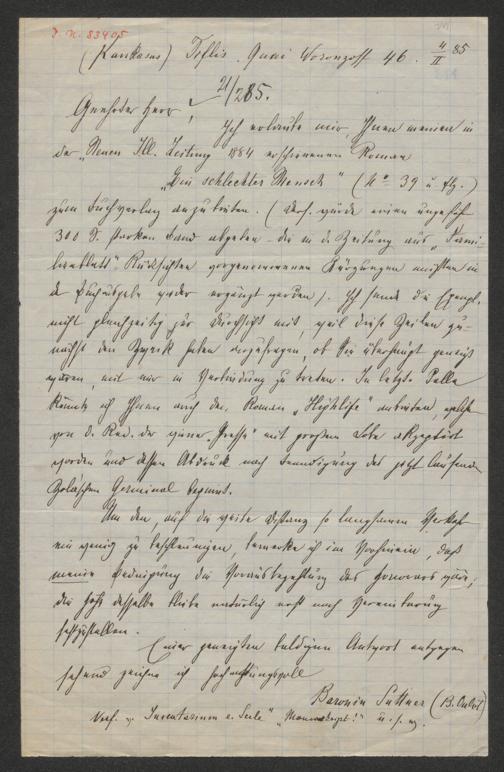 J. N. 83405
(Kaukasus) Tiflis. Quai Woronzoff 46. 4/II 85
21/2 85.
Geehrter Herr!
Ich erlaube mir, Ihnen meinen in
der „Neuen Ill. Zeitung 1884 erschienenen Roman
„Ein schlechter Mensch" (No 39 u. flg.)
zum Buchverlag anzubieten. (Derf. würde einen ungefähr
300 S. starken Band abgeben die in d. Zeitung aus „Fami-
lienblatt" Rücksichten vorgenommenen Kürzungen müßten in
d. Buchausgabe wieder ergänzt werden). Ich sende die Exempl.
nicht gleichzeitig zur Durchsicht mit, weil diese Zeilen zu-
nächst den Zweck haben anzufragen, ob Sie überhaupt geneigt
wären, mit mir in Verbindung zu treten. In letzt. Falle
könnte ich Ihnen auch den Roman „Highlife" anbieten, welcher
von d. Red. der wiener „Presse" mit großem Lobe akzeptirt
worden und dessen Abdruck nach Beendigung des jetzt laufenden
Zola'schen Germinal beginnt.
Um den, auf die weite Distanz so langsamen Verkehr
ein wenig zu beschleunigen, bemerke ich im Vorhinein, daß
meine Bedingung die Vorausbezahlung des Honorars wäre;
die Höhe desselben bliebe natürlich erst nach Vereinbarung
festzustellen.
Einer geneigten baldigen Antwort entgegen
sehend zeichne ich hochachtungsvoll
Baronin Suttner (B. Oulot)
Verf. v. Inventarium e. Seele" „Manuscript!" u. s. w.